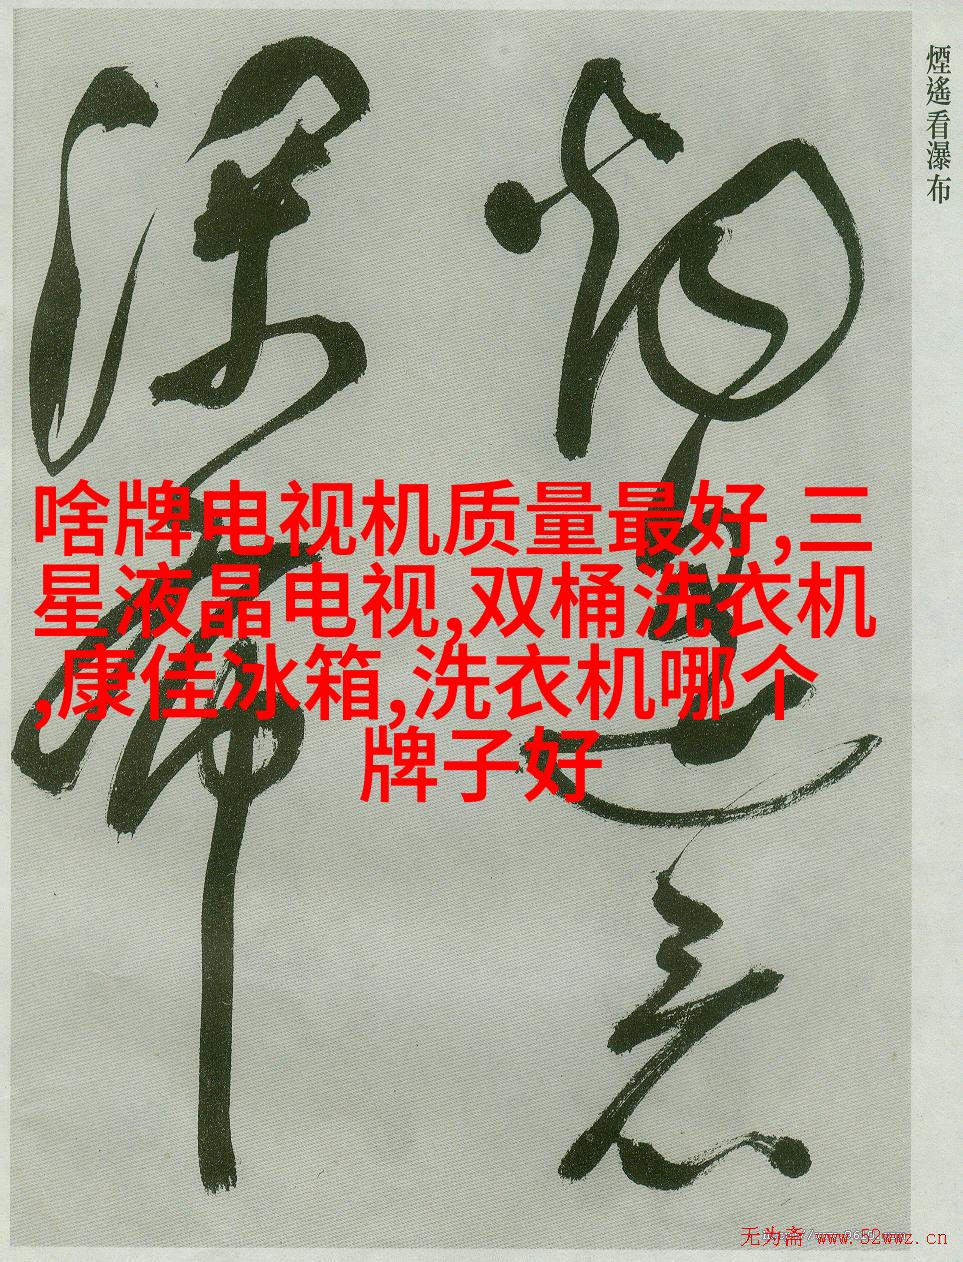 煙遙看瀑布
啥牌电视机质量最好,三
星液晶电视,双桶洗衣机
,康佳冰箱,洗衣机哪个
牌子好
煙遙看
瀑布
无为斋 www.52wwz.cn